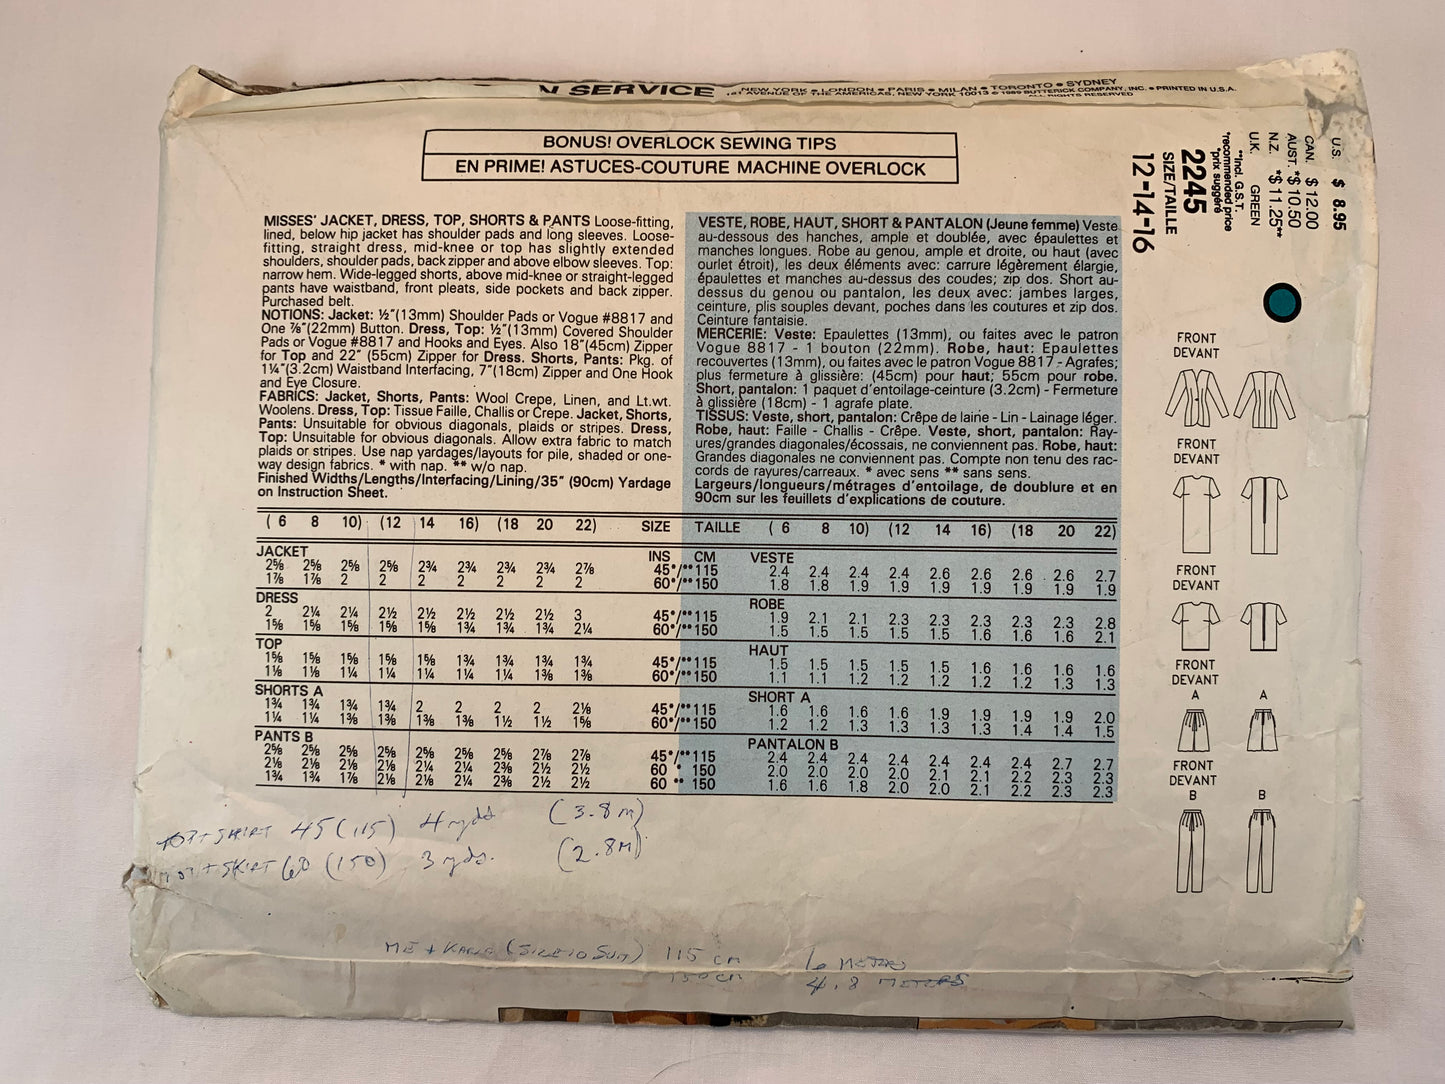 N SERVICE
NEW YORK • LONDON • PARIS • MILAN • TORONTO • SYDNEY
161 AVENUE OF THE AMERICAS, NEW YORK 10013 © 1989 BUTTERICK COMPANY, INC. • PRINTED IN U.S.A.
ALL RIGHTS RESERVED
BONUS! OVERLOCK SEWING TIPS
EN PRIME! ASTUCES-COUTURE MACHINE OVERLOCK
U.S. $ 8.95
CAN. $ 12.00
AUST. *$ 10.50
N.Z. *$ 11.25**
U.K. GREEN
**Incl. G.S.T.
*recommended price
*prix suggéré
2245
SIZE/TAILLE
12-14-16
MISSES' JACKET, DRESS, TOP, SHORTS & PANTS Loose-fitting,
lined, below hip jacket has shoulder pads and long sleeves. Loose-
fitting, straight dress, mid-knee or top has slightly extended
shoulders, shoulder pads, back zipper and above elbow sleeves. Top:
narrow hem. Wide-legged shorts, above mid-knee or straight-legged
pants have waistband, front pleats, side pockets and back zipper.
Purchased belt.
NOTIONS: Jacket: ½"(13mm) Shoulder Pads or Vogue #8817 and
One ⅞"(22mm) Button. Dress, Top: ½"(13mm) Covered Shoulder
Pads or Vogue #8817 and Hooks and Eyes. Also 18"(45cm) Zipper
for Top and 22" (55cm) Zipper for Dress. Shorts, Pants: Pkg. of
1¼"(3.2cm) Waistband Interfacing, 7"(18cm) Zipper and One Hook
and Eye Closure.
FABRICS: Jacket, Shorts, Pants: Wool Crepe, Linen, and Lt.wt.
Woolens. Dress, Top: Tissue Faille, Challis or Crepe. Jacket, Shorts,
Pants: Unsuitable for obvious diagonals, plaids or stripes. Dress,
Top: Unsuitable for obvious diagonals. Allow extra fabric to match
plaids or stripes. Use nap yardages/layouts for pile, shaded or one-
way design fabrics. * with nap. ** w/o nap.
Finished Widths/Lengths/Interfacing/Lining/35" (90cm) Yardage
on Instruction Sheet.
VESTE, ROBE, HAUT, SHORT & PANTALON (Jeune femme) Veste
au-dessous des hanches, ample et doublée, avec épaulettes et
manches longues. Robe au genou, ample et droite, ou haut (avec
ourlet étroit), les deux éléments avec: carrure légèrement élargie,
épaulettes et manches au-dessus des coudes; zip dos. Short au-
dessus du genou ou pantalon, les deux avec: jambes larges,
ceinture, plis souples devant, poches dans les coutures et zip dos.
Ceinture fantaisie.
MERCERIE: Veste: Epaulettes (13mm), ou faites avec le patron
Vogue 8817 - 1 bouton (22mm). Robe, haut: Epaulettes
recouvertes (13mm), ou faites avec le patron Vogue 8817 - Agrafes;
plus fermeture à glissière: (45cm) pour haut; 55cm pour robe.
Short, pantalon: 1 paquet d'entoilage-ceinture (3.2cm) - Fermeture
à glissière (18cm) - 1 agrafe plate.
TISSUS: Veste, short, pantalon: Crêpe de laine - Lin - Lainage léger.
Robe, haut: Faille - Challis - Crêpe. Veste, short, pantalon: Ray-
ures/grandes diagonales/écossais, ne conviennent pas. Robe, haut:
Grandes diagonales ne conviennent pas. Compte non tenu des rac-
cords de rayures/carreaux. * avec sens ** sans sens.
Largeurs/longueurs/métrages d'entoilage, de doublure et en
90cm sur les feuillets d'explications de couture.
( 6 8 10) (12 14 16) (18 20 22) SIZE TAILLE ( 6 8 10) (12 14 16) (18 20 22)
JACKET INS CM VESTE
2⅝ 2⅝ 2⅝ 2⅝ 2¾ 2¾ 2¾ 2¾ 2⅞ 45*/** 115 2.4 2.4 2.4 2.4 2.6 2.6 2.6 2.6 2.7
1⅞ 1⅞ 2 2 2 2 2 2 2 60*/** 150 1.8 1.8 1.9 1.9 1.9 1.9 1.9 1.9 1.9
DRESS ROBE
2 2¼ 2¼ 2½ 2½ 2½ 2½ 2½ 3 45*/** 115 1.9 2.1 2.1 2.3 2.3 2.3 2.3 2.3 2.8
1⅝ 1⅝ 1⅝ 1⅝ 1⅝ 1¾ 1¾ 1¾ 2¼ 60*/** 150 1.5 1.5 1.5 1.5 1.5 1.6 1.6 1.6 2.1
TOP HAUT
1⅝ 1⅝ 1⅝ 1⅝ 1⅝ 1¾ 1¾ 1¾ 1¾ 45*/** 115 1.5 1.5 1.5 1.5 1.5 1.6 1.6 1.6 1.6
1⅛ 1⅛ 1¼ 1¼ 1¼ 1¼ 1¼ 1⅜ 1⅜ 60*/** 150 1.1 1.1 1.2 1.2 1.2 1.2 1.2 1.3 1.3
SHORTS A SHORT A
1¾ 1¾ 1¾ 1¾ 2 2 2 2 2⅛ 45*/** 115 1.6 1.6 1.6 1.6 1.9 1.9 1.9 1.9 2.0
1¼ 1¼ 1⅜ 1⅜ 1⅜ 1⅜ 1½ 1½ 1⅝ 60*/** 150 1.2 1.2 1.3 1.3 1.3 1.3 1.4 1.4 1.5
PANTS B PANTALON B
2⅝ 2⅝ 2⅝ 2⅝ 2⅝ 2⅝ 2⅝ 2⅞ 2⅞ 45*/** 115 2.4 2.4 2.4 2.4 2.4 2.4 2.4 2.7 2.7
2⅛ 2⅛ 2⅛ 2⅛ 2¼ 2¼ 2⅜ 2½ 2½ 60 * 150 2.0 2.0 2.0 2.0 2.1 2.1 2.2 2.3 2.3
1¾ 1¾ 1⅞ 2⅛ 2⅛ 2¼ 2⅜ 2½ 2½ 60 ** 150 1.6 1.6 1.8 2.0 2.0 2.1 2.2 2.3 2.3
FRONT
DEVANT
FRONT
DEVANT
FRONT
DEVANT
FRONT
DEVANT
A A
FRONT
DEVANT
B B
TOP + SKIRT 45 (115) 4 yds (3.8 M)
+ SKIRT 60 (150) 3 yds. (2.8M)
ME + (SIZE 10 SUIT) 115 cm 6 METRES
150 cm 4.8 METERS